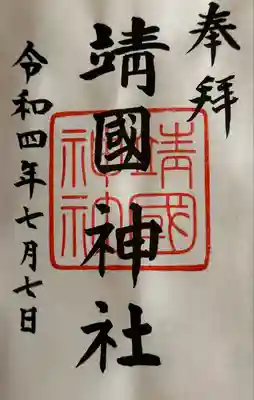 奉拝
靖國神社
令和四年七月七日
靖國
神社